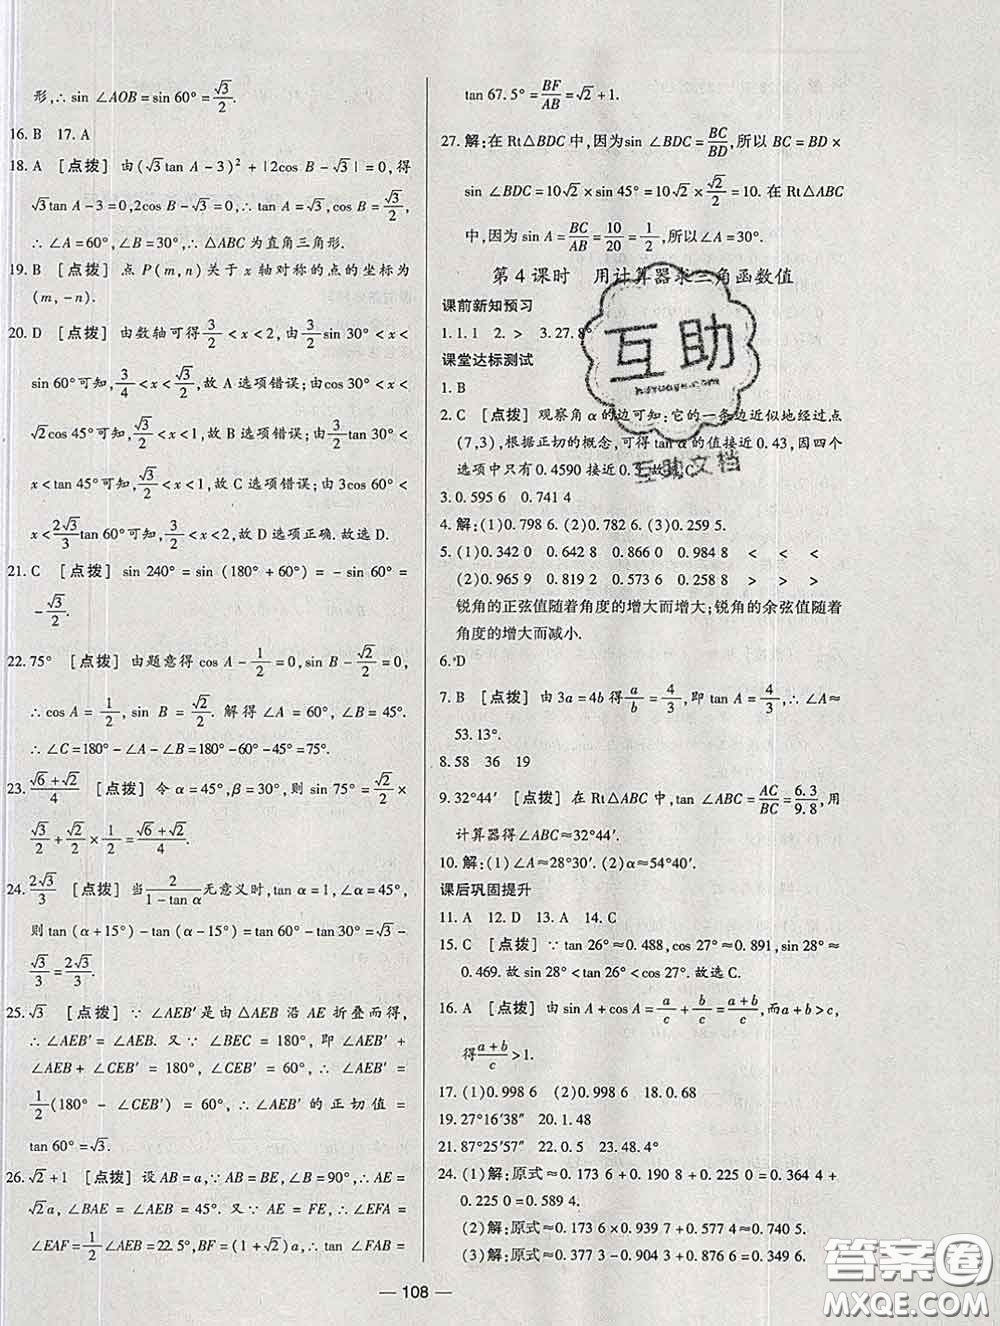 形,∴sin ∠AOB=sin 60°=√3/2.
16. B　17. A
18. A　[点拨]　由(√3tan A-3)²+|2cos B-√3|=0,得
√3tan A-3=0,2cos B-√3=0,∴tan A=√3,cos B=√3/2,
∴∠A=60°,∠B=30°,∴△ABC 为直角三角形.
19. B　[点拨]　点 P(m,n)关于 x 轴对称的点的坐标为
(m,-n).
20. D　[点拨]　由数轴可得 3/2<x<2,由 sin 30°<x<
sin 60°可知,3/4<x<√3/2,故 A 选项错误;由 cos 30°<x<
√2cos 45°可知,√3/2<x<1,故 B 选项错误;由 3/2tan 30°<
x<tan 45°可知,√3/2<x<1,故 C 选项错误;由 3cos 60°<
x<2√3/3tan 60°可知,3/2<x<2,故 D 选项正确.故选 D.
21. C　[点拨]　sin 240°=sin (180°+60°)=-sin 60°=
-√3/2.
22. 75°　[点拨]　由题意得 cos A-1/2=0,sin B-√2/2=0,
∴cos A=1/2,sin B=√2/2. 解得∠A=60°,∠B=45°.
∴∠C=180°-∠A-∠B=180°-60°-45°=75°.
23. (√6+√2)/4　[点拨]　令 α=45°,β=30°,则 sin 75°=√2/2×
√3/2+√2/2×1/2=(√6+√2)/4.
24. 2√3/3　[点拨]　当 2/(1-tan α) 无意义时,tan α=1,∠α=45°,
则 tan (α+15°)-tan (α-15°)=tan 60°-tan 30°=√3-
√3/3=2√3/3.
25. √3　[点拨]　∵∠AEB′是由△AEB 沿 AE 折叠而得,
∴∠AEB′=∠AEB. 又∵∠BEC=180°,即∠AEB′+
∠AEB+∠CEB′=180°,∠CEB′=60°,∴∠AEB′=
1/2(180°-∠CEB′)=60°,∴∠AEB′ 的正切值=
tan 60°=√3.
26. √2+1　[点拨]　设 AB=a,∵AB=BE,∠B=90°,∴AE=
√2a,∠BAE=∠AEB=45°. 又∵AE=FE,∴∠EFA=
∠EAF=1/2∠AEB=22.5°,BF=(1+√2)a,∴tan ∠FAB=
tan 67.5°=BF/AB=√2+1.
27. 解:在 Rt△BDC 中,因为sin ∠BDC=BC/BD,所以 BC=BD×
sin ∠BDC=10√2×sin 45°=10√2×√2/2=10. 在 Rt△ABC
中,因为 sin A=BC/AB=10/20=1/2,所以∠A=30°.
第 4 课时　用计算器求三角函数值
课前新知预习
1. 1. 1　2. >　3. 27. 8°
课堂达标测试
1. B
2. C　[点拨]　观察角 α 的边可知:它的一条边近似地经过点
(7,3),根据正切的概念,可得 tan α 的值接近 0. 43,因四个
选项中只有 0. 4590 接近 0. 故选 C.
3. 0. 595 6　0. 741 4
4. 解:(1)0. 798 6. (2)0. 786 5. (3)0. 259 5.
5. (1)0. 342 0　0. 642 8　0. 866 0　0. 984 8　<　<　<
(2)0. 965 9　0. 819 2　0. 573 6　0. 258 8　>　>　>
锐角的正弦值随着角度的增大而增大;锐角的余弦值随着
角度的增大而减小.
6. D
7. B　[点拨]　由 3a=4b 得 a/b=4/3,即 tan A=4/3,∴∠A≈
53. 13°.
8. 58　36　19
9. 32°44′　[点拨]　在 Rt△ABC 中,tan ∠ABC=AC/BC=6.3/9.8,用
计算器得∠ABC≈32°44′.
10. 解:(1)∠A≈28°30′. (2)α≈54°40′.
课后巩固提升
11. A　12. D　13. A　14. C
15. C　[点拨]　∵tan 26°≈0. 488,cos 27°≈0. 891,sin 28°≈
0. 469. 故 sin 28°<tan 26°<cos 27°. 故选 C.
16. A　[点拨]　由 sin A+cos A=a/c+b/c=(a+b)/c,而a+b>c,
得(a+b)/c>1.
17. (1)0. 998 6　(2)0. 998 6　18. 0. 68
19. 27°16′38″　20. 1. 48
21. 87°25′57″　22. 0. 5　23. 48. 4°
24. (1)解:原式≈0. 173 6+0. 190 8+0. 225 0=0. 364 4+
0. 225 0=0. 589 4.
(2)解:原式≈0. 173 6×0. 939 7+0. 173 6=0. 336 7.
(3)解:原式≈0. 377 3-0. 904 3+0. 876 6=0. 349 6.
互助
互助文档
— 108 —
答案圈
MXQE.COM